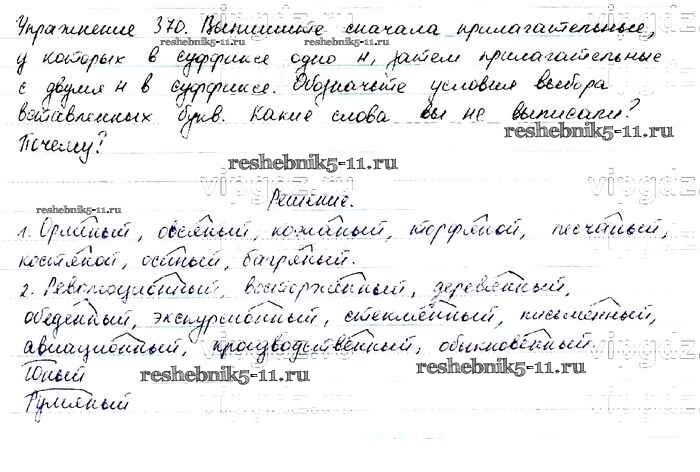 Упражнение 370. Выпишите сначала прилагательные,
reshebnik5-11.ru
у которых в суффиксе одно н, затем прилагательные
с двумя н в суффиксе. Обозначьте условия выбора
вставленных букв. Какие слова вы не выписали?
reshebnik5-11.ru
Почему?
reshebnik5-11.ru
vipgdz
Решение.
reshebnik5-11.ru
1. Орлиный, овсяный, кожаный, торфяной, песчаный,
костяной, осиный, багряный.
2. Революционный, восторженный, деревянный,
обеденный, экскурсионный, стеклянный, письменный,
авиационный, производственный, обыкновенный.
Юный
reshebnik5-11.ru
reshebnik5-11.ru
Румяный